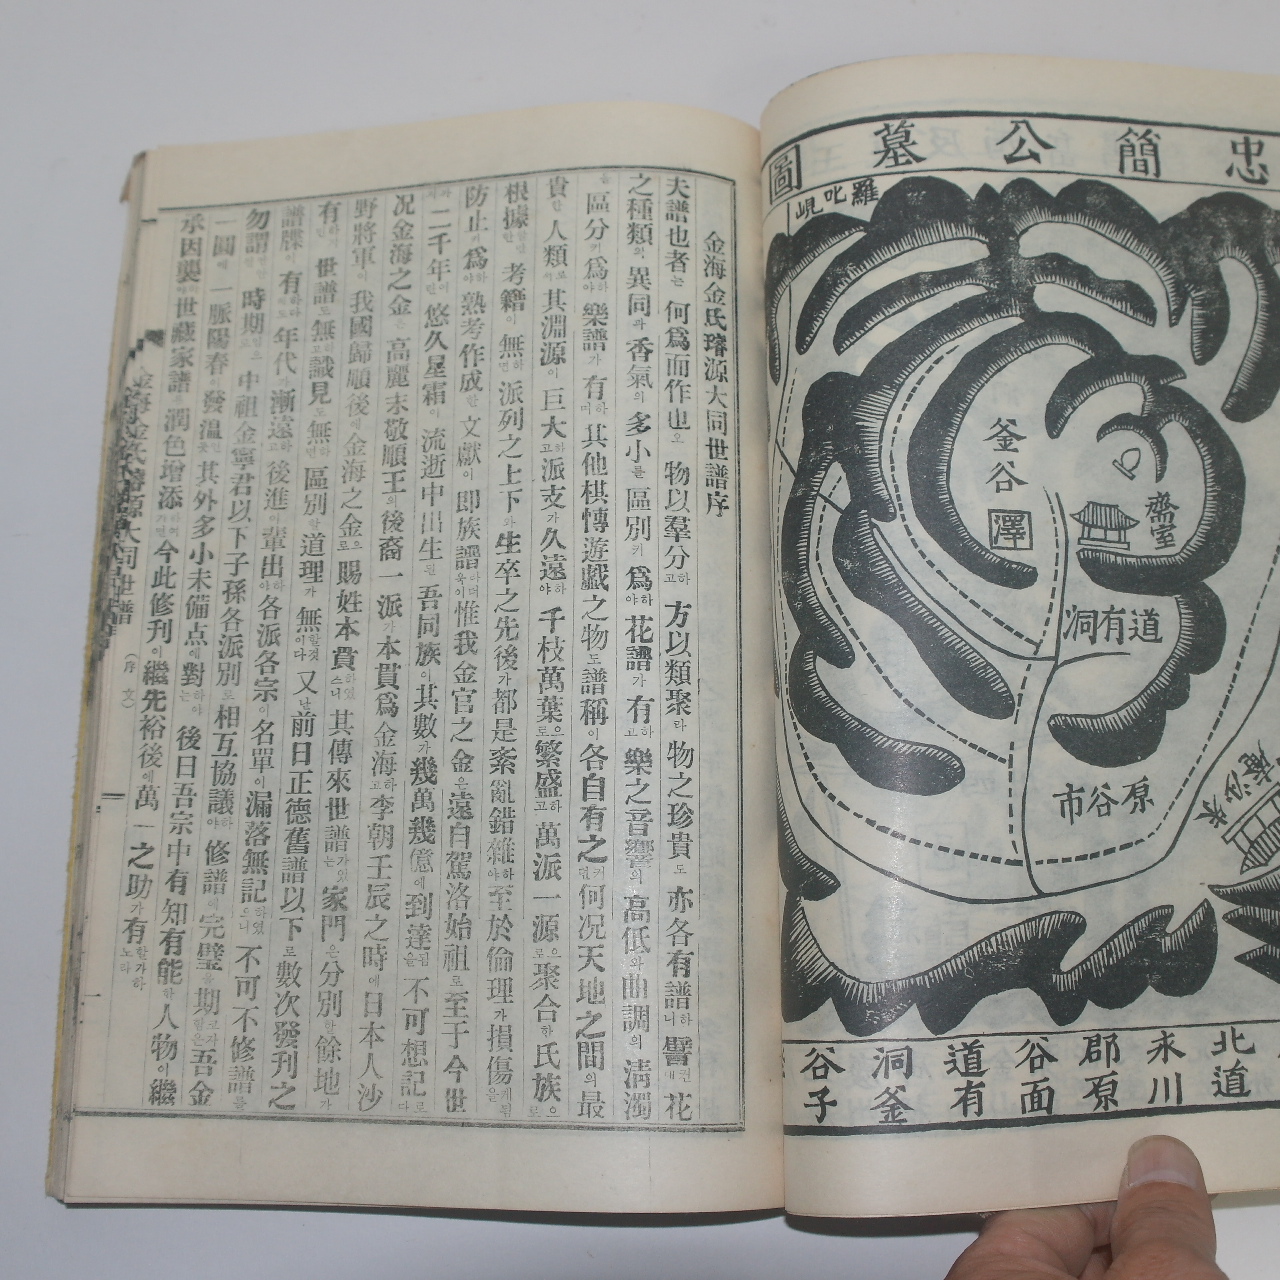 忠簡公墓圖
羅叱峴
釜谷
澤
齋室
道有洞
原谷市
北道
永川
郡原
谷面
道有
洞釜
谷子
金海金氏璿源大同世譜序
夫譜也者는 何爲而作也오 物以羣分하고 方以類聚라 物之珍貴도 亦各有譜하니 譬컨대 花
之種類의 異同과 香氣의 多小를 區別키 爲하야 花譜가 有하고 樂之音響의 高低와 曲調의 淸濁
을 區分키 爲하야 樂譜가 有하며 其他棋慱遊戱之物도 譜稱이 各自有之커던 何况天地之間의 最
貴한 人類로써 其淵源이 巨大하고 派支가 久遠하야 千枝萬葉으로 繁盛하고 萬派一源으로 聚合한 氏族으로
根據할만한 考籍이 無하면 派列之上下와 生卒之先後가 都是紊亂錯雜하야 至於倫理가 損傷케됨을
防止키 爲하야 熟考作成한 文獻이 即族譜 惟我金官之金은 遠自駕洛始祖로 至于今世
二千年이 悠久星霜이 流逝中出生된 吾同族이 其數가 幾萬幾億에 到達됨을 不可想記로다
况金海之金은 高麗末敬順王의 後裔一派가 本貫爲金海하고 李朝壬辰之時에 日本人沙
野將軍이 我國歸順後에 金海之金으로 賜姓本貫하였스니 其傳來世譜가 있는 家門은 分別할 餘地가
有하기니와 世譜도 無하고 識見도 無하면 區別할 道理가 無할것이다 又 前日正德舊譜以下로 數次發刊之
譜牒이 有하나 年代가 漸遠하고 後進이 輩出하야 各派各宗이 名單이 漏落無記하였으니 不可不修譜를
勿謂 時期 中祖金寧君以下子孫各派別로 相互協議하야 修譜의 完璧을 期코자할은 吾金
一園에 一脈陽春이 發温 其外多小未備点에 對하야는 後日吾宗中有知有能한 人物이 繼
承因襲 世藏家譜를 潤色增添하면 今此修刊이 繼先裕後에 萬一之助가 有할가하노라
金海金氏璿源大同世譜
（序文）
一